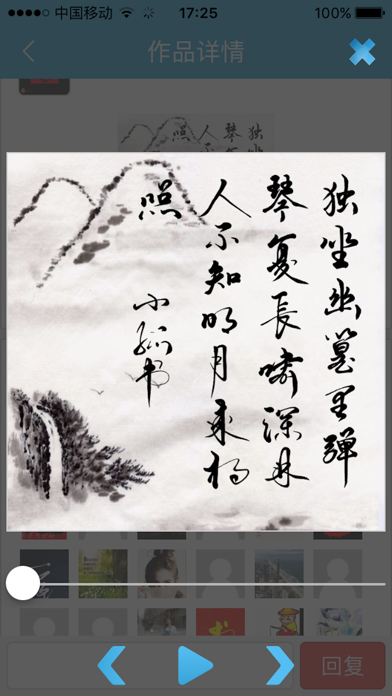 中国移动 17:25 100%
作品详情
独坐幽篁里弹
琴复長嘯深林
人不知明月来相
照
小 书
回复